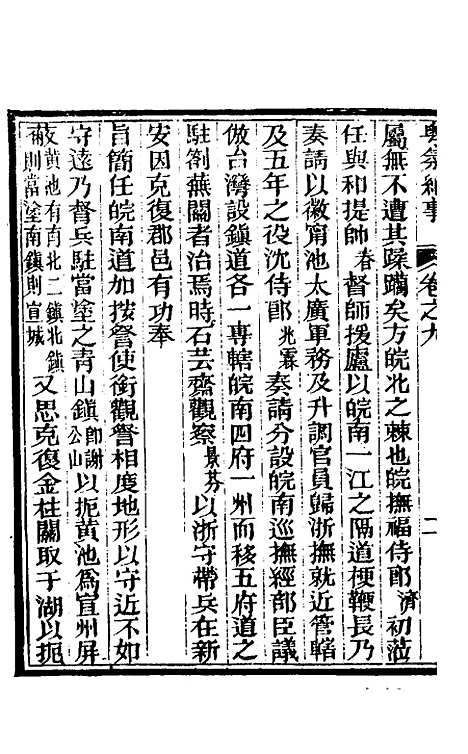 卷之九　二
屬無不遭其蹂躪矣方皖北之棘也皖撫福侍郎濟初蒞
任與和提帥春督師援廬以皖南一江之隔道梗鞭長乃
奏請以徽甯池太廣軍務及升調官員歸浙撫就近管轄
及五年之役沈侍郎兆霖奏請分設皖南巡撫經部臣議
倣台灣設鎮道各一專轄皖南四府一州而移五府道之
駐劄蕪關者治焉時石芸齋觀察景芬以浙守帶兵在新
安因克復郡邑有功奉
旨簡任皖南道加按察使銜觀詧相度地形以守近不如
守遠乃督兵駐當塗之青山鎮即謝公山以扼黃池為宣州屏
黃池有南北二鎮北鎮則當塗南鎮則宣城又思克復金柱關取于湖以扼